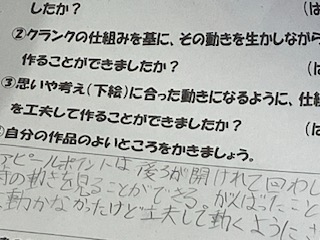 したか？ (は
②クランクの仕組みを基に、その動きを生かしながら
作ることができましたか？ (は
③思いや考え（下絵）に合った動きになるように、仕
を工夫して作ることができましたか？ (
自分の作品のよいところをかきましょう。
アピールポイントは後ろが開けれて回わし
時の動きを見ることができる。がんばたこと
動かなかったけど工夫して動くようにさ